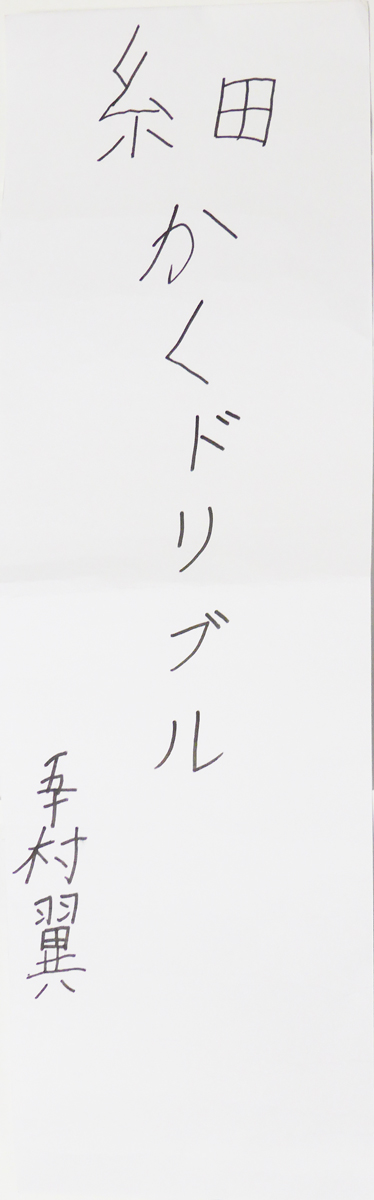 細かくドリブル
峯村翼